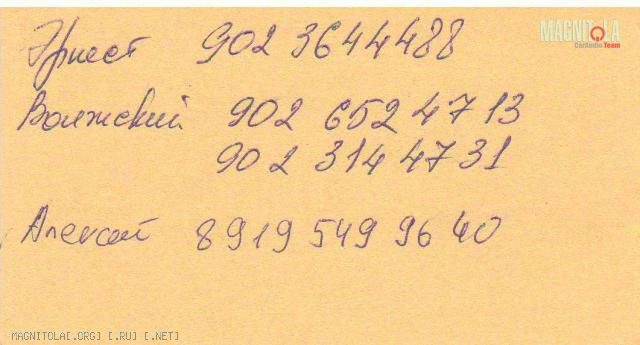 MAGNITOLA
CarAudio Team
Эрнест 902 3644488
Волжский 902 652 47 13
902 314 47 31
Алексей 8919 549 96 40
MAGNITOLA[.ORG] [.RU] [.NET]